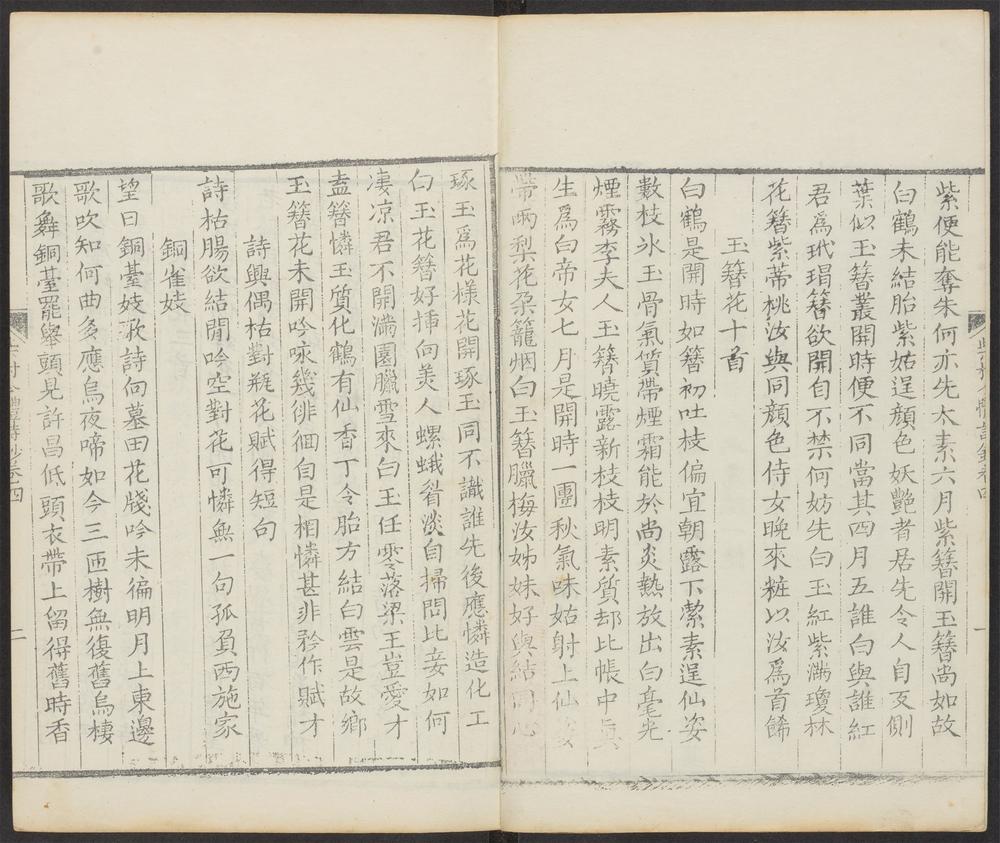 紫便能奪朱何亦先太素六月紫簪開玉簪尚如故
白鶴未結胎紫姑逞顏色妖艷者居先令人自反側
葉似玉簪叢開時便不同當其四月五誰白與誰紅
君爲玳瑁簪欲開自不禁何妨先白玉紅紫滿瓊林
花簪紫蒂桃汝與同顏色侍女晚來粧以汝爲首餙
玉簪花十首
白鶴是開時如簪初吐枝偏宜朝露下縈素逞仙姿
數枝氷玉骨氣質帶煙霜能於尚炎熱放出白毫光
煙霧李夫人玉簪曉露新枝枝明素質却比帳中眞
生爲白帝女七月是開時一團秋氣味姑射上仙
帶雨梨花朶籠烟白玉簪臘梅汝姊妹好與結同心
琢玉爲花樣花開琢玉同不識誰先後應憐造化工
白玉花簪好揷向美人螺蛾眉淡自掃問比妾如何
凄凉君不開滿園臘雪來白玉任零落梁王豈愛才
盍簪憐玉質化鶴有仙香丁令胎方結白雲是故鄉
玉簪花未開吟咏幾徘徊自是相憐甚非矜作賦才
詩興偶枯對甁花賦得短句
詩枯腸欲結閒吟空對花可憐無一句孤負西施家
銅雀妓
望曰銅臺妓歌詩向墓田花牋吟未徧明月上東邊
歌吹知何曲多應烏夜啼如今三匝樹無復舊烏棲
歌舞銅臺罷舉頭見許昌低頭衣帶上留得舊時香